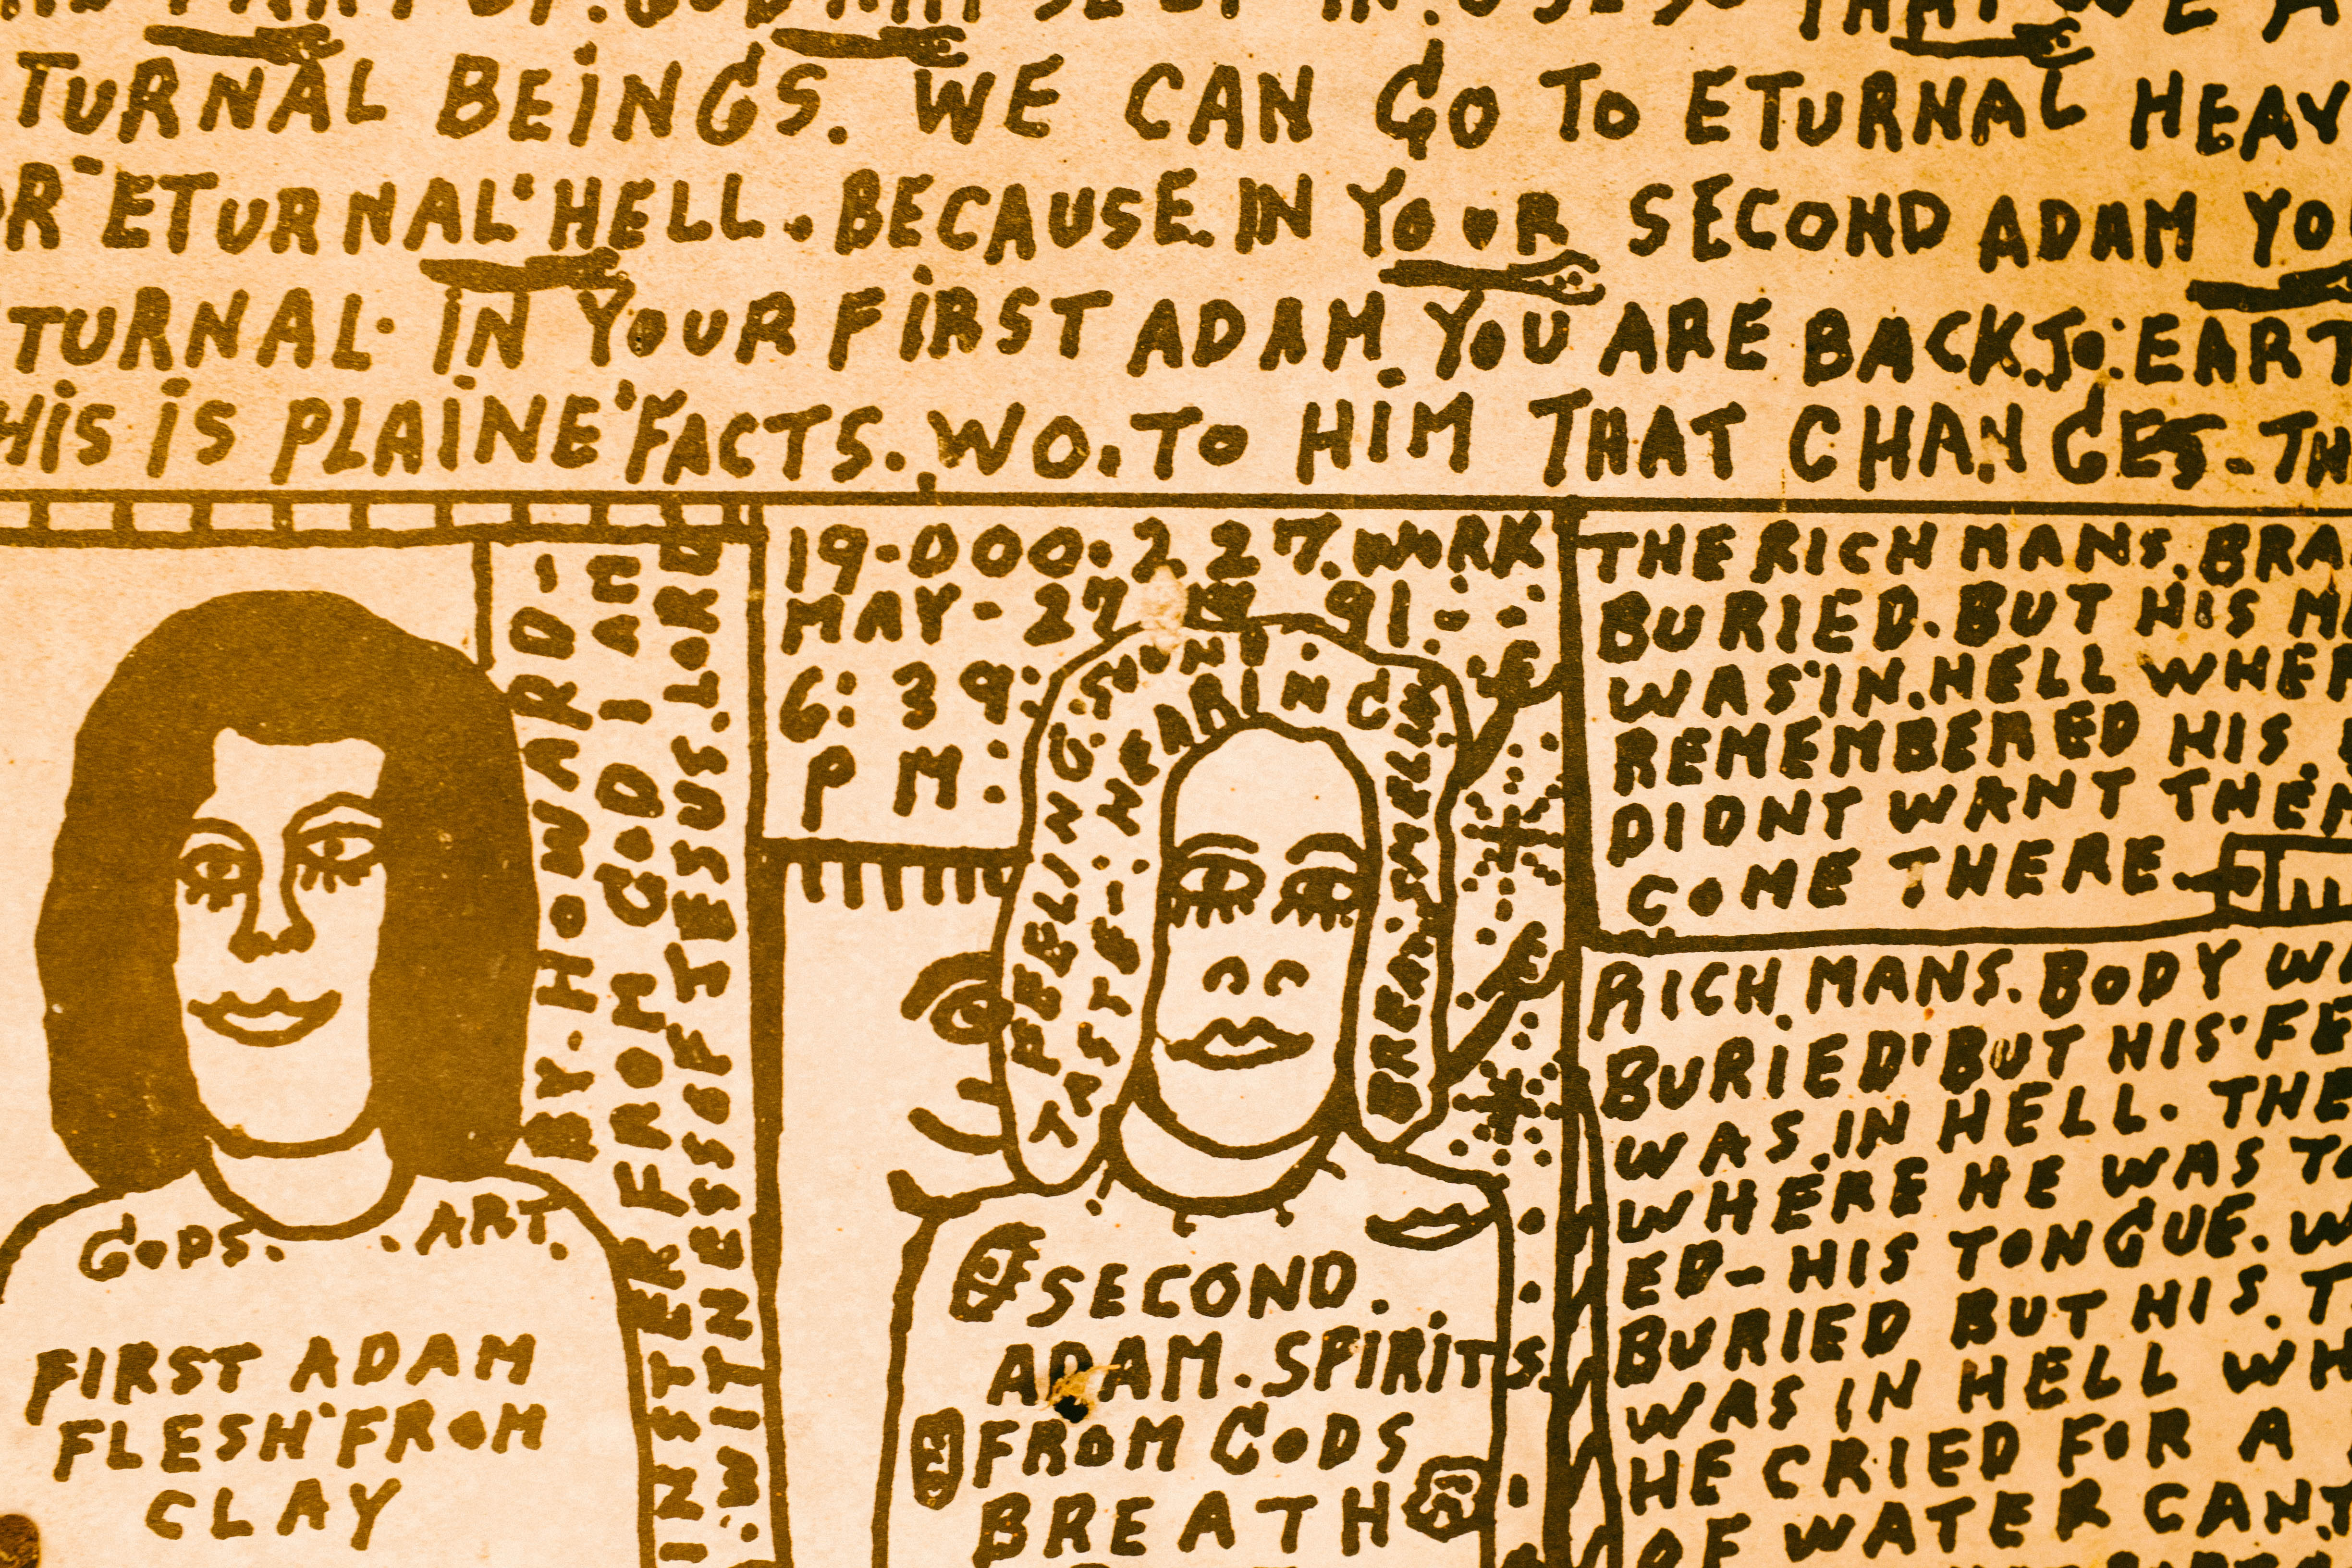 TURNAL BEINGS. WE CAN GO TO ETURNAL HEAV
R ETURNAL HELL. BECAUSE. IN YOUR SECOND ADAM YO
TURNAL. IN YOUR FIRST ADAM YOU ARE BACK. TO: EART
HIS IS PLAINE FACTS. WO. TO HIM THAT CHANGES - TH
BY. HOWARD-
INSTER FROM GOD I AM
. WITNESS OF JESUS. LORD
GODS. . ART.
FIRST ADAM
FLESH FROM
CLAY
19-000.227. WORK
MAY-27 91.
6:39:
PM:
FEELING. SIGHT.
TASTE. HEARING
BREATH SMELL
SECOND.
ADAM. SPIRITS.
FROM GODS
BREATH
THE RICH MANS. BRA
BURIED. BUT HIS M
WAS IN. HELL WHER
REMEMBERED HIS.
DIDNT WANT THEM
COME THERE
RICH MANS. BODY WA
BURIED BUT HIS FE
WAS IN HELL. THE
WHERE HE WAS TO
ED - HIS TONGUE. W
BURIED BUT HIS. T
WAS IN HELL WH
HE CRIED FOR A
OF WATER CANT